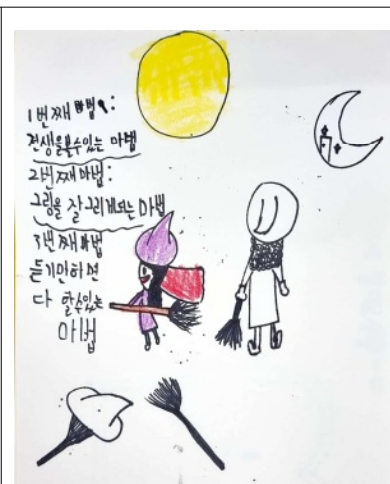 1번째 마법:
전생을볼수있는 마법
2번째 마법:
그림을 잘 그리게되는 마법
3번째 마법
듣기만하면
다 할수있는
마법